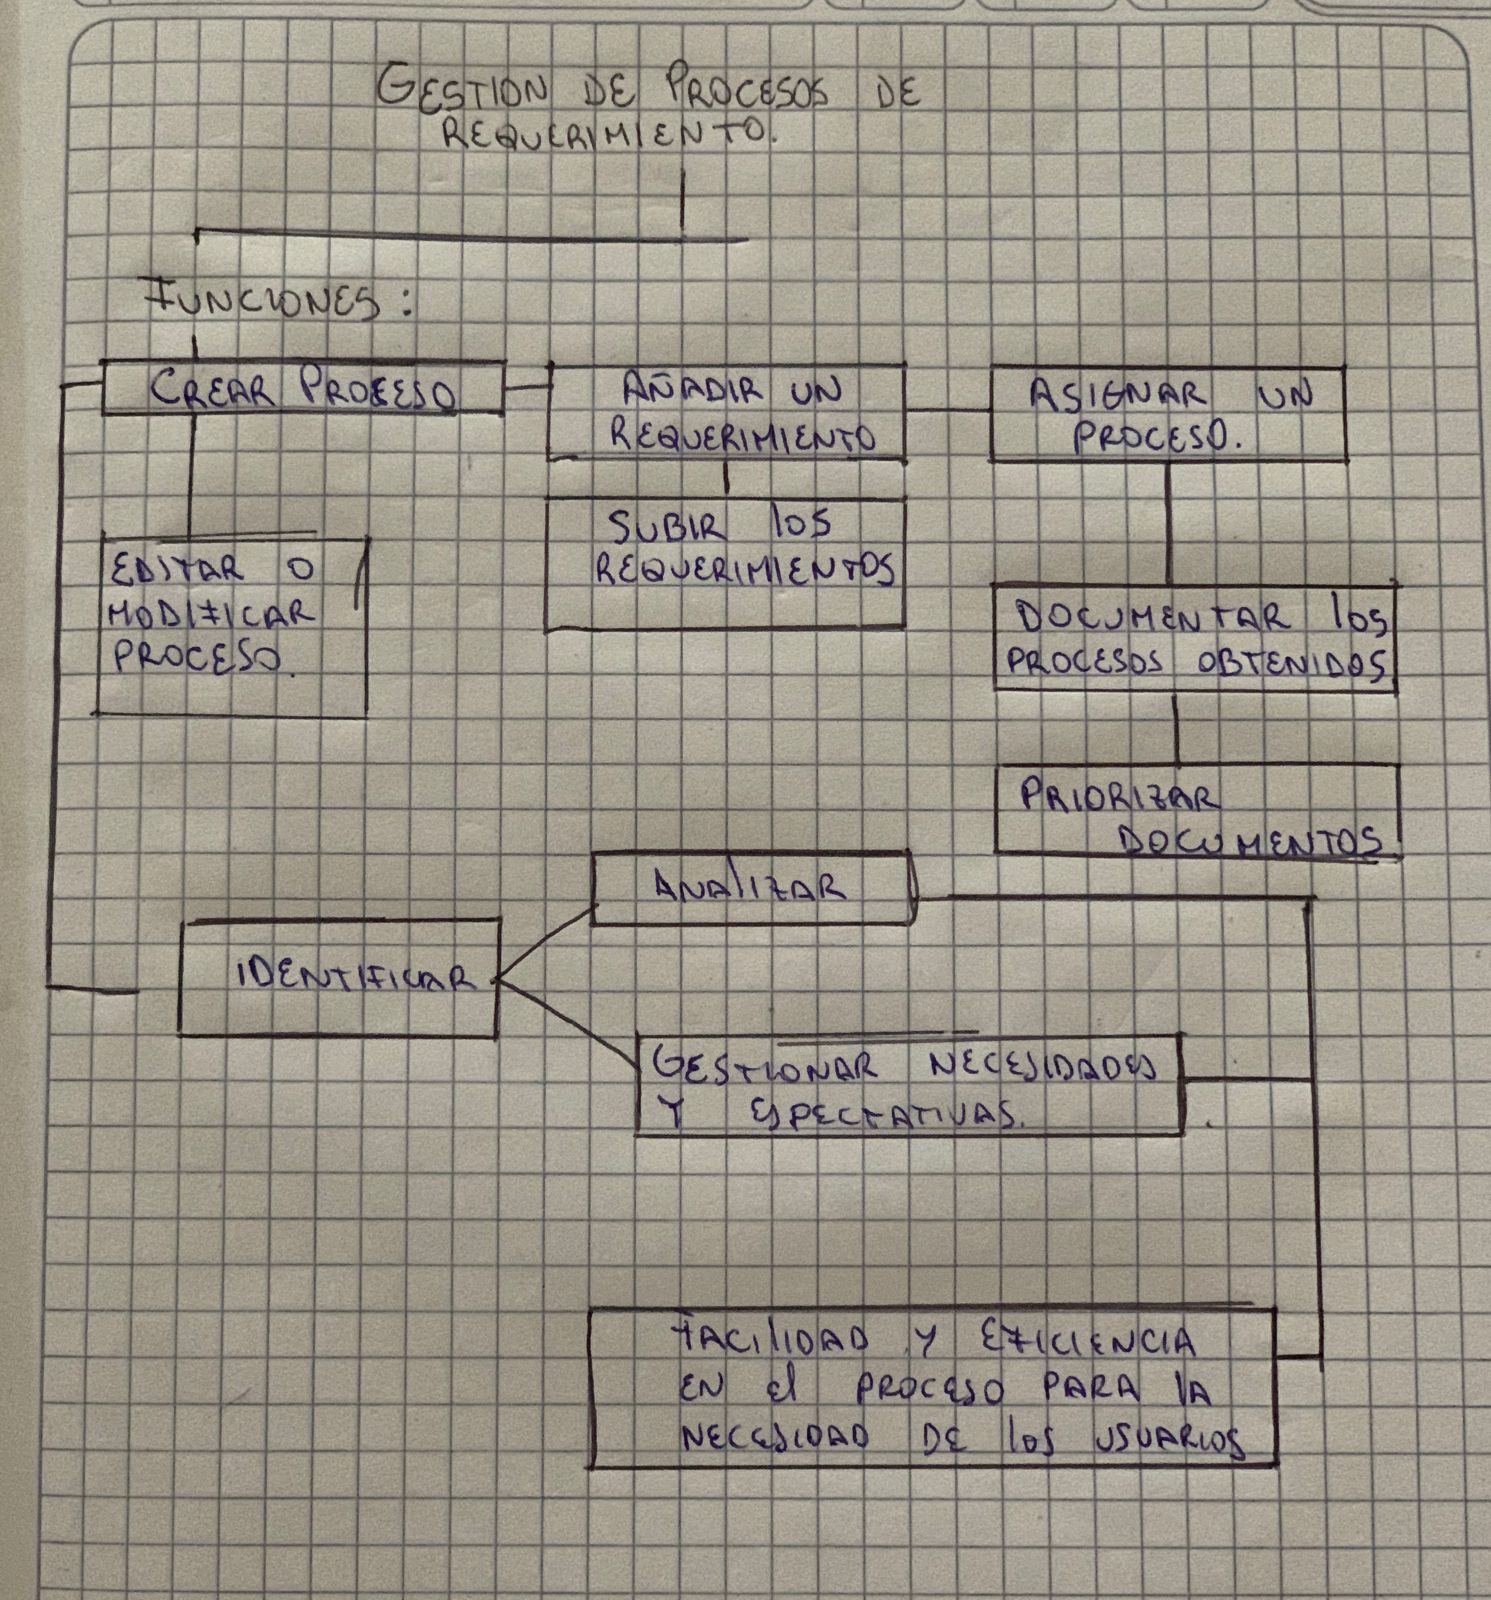 GESTION DE PROCESOS DE
REQUERIMIENTO.
FUNCIONES:
CREAR PROCESO
AÑADIR UN
REQUERIMIENTO
ASIGNAR UN
PROCESO.
SUBIR LOS
REQUERIMIENTOS
EDITAR O
MODIFICAR
PROCESO.
DOCUMENTAR LOS
PROCESOS OBTENIDOS
PRIORIZAR
DOCUMENTOS
ANALIZAR
IDENTIFICAR
GESTIONAR NECESIDADES
Y ESPECTATIVAS.
FACILIDAD Y EFICIENCIA
EN EL PROCESO PARA LA
NECESIDAD DE LOS USUARIOS